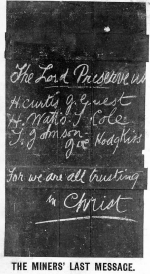 The Lord Preserve us
H. Curtis J. Guest
H. Watkis T. Cole
T. Johnson
Joe Hodgkins
For we are all trusting
in Christ
THE MINERS' LAST MESSAGE.